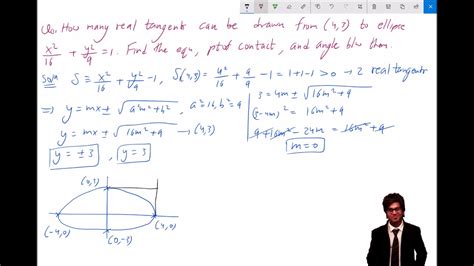 Q. How many real tangents can be drawn from (4,3) to ellipse
x²/16 + y²/9 = 1. Find the eqn, pt of contact, and angle b/w them.
Soln S ≡ x²/16 + y²/9 - 1, S(4,3) = 4²/16 + 9/9 - 1 = 1+1-1 > 0 → 2 real tangents
⇒ y = mx ± √(a²m² + b²), a² = 16, b² = 9
y = mx ± √(16m² + 9) → (4,3)
y = ± 3, y = 3
3 = 4m ± √(16m² + 9)
(3-4m)² = 16m² + 9
9 + 16m² - 24m = 16m² + 9
m = 0
(4,3)
(-4,0)
(0,-3)
(4,0)